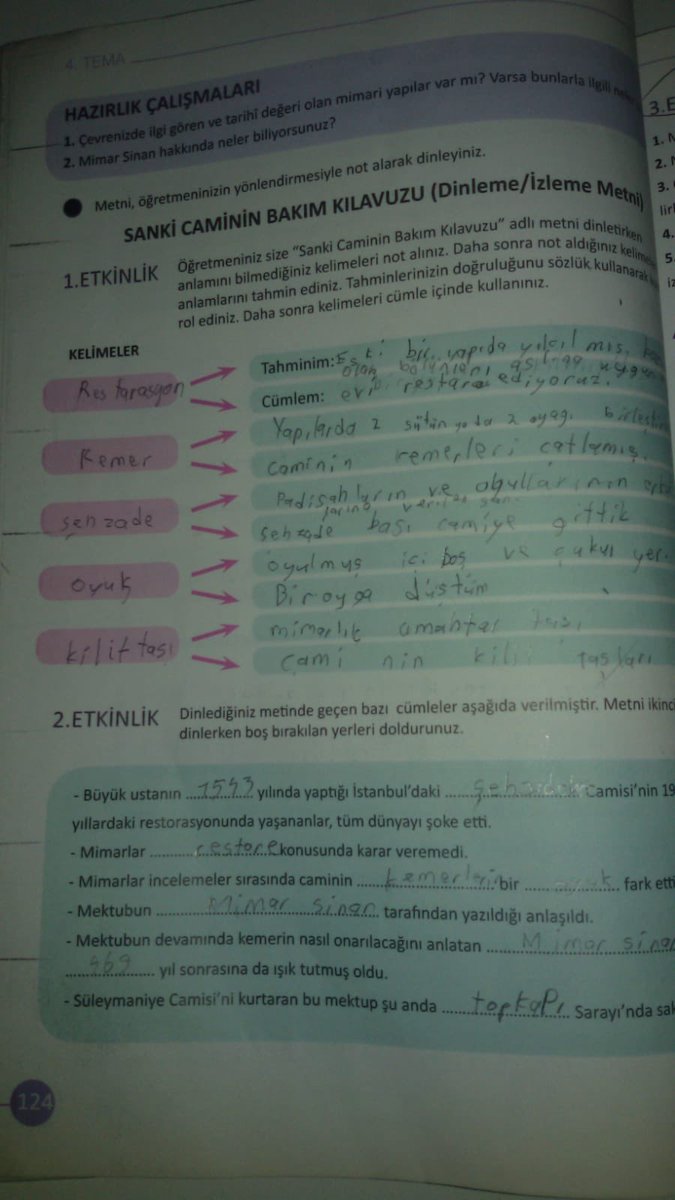 4. TEMA
HAZIRLIK ÇALIŞMALARI
1. Çevrenizde ilgi gören ve tarihî değeri olan mimari yapılar var mı? Varsa bunlarla ilgili neler
2. Mimar Sinan hakkında neler biliyorsunuz?
Metni, öğretmeninizin yönlendirmesiyle not alarak dinleyiniz.
SANKİ CAMİNİN BAKIM KILAVUZU (Dinleme/İzleme Metni)
1.ETKİNLİK
Öğretmeniniz size "Sanki Caminin Bakım Kılavuzu" adlı metni dinletirken
anlamını bilmediğiniz kelimeleri not alınız. Daha sonra not aldığınız kelime
anlamlarını tahmin ediniz. Tahminlerinizin doğruluğunu sözlük kullanarak
rol ediniz. Daha sonra kelimeleri cümle içinde kullanınız.
KELİMELER
Restarasyon
Tahminim: Eski bir yapıda yıkılmış,
olan
Cümlem: evi restara ediyoruz.
Kemer
Yapılarda 2 sütün yada 2 ayağı birleştir
Caminin kemerleri çatlamış.
şehzade
Padişahların ve oğullarının
şehzade başı camiye gittik
oyuk
oyulmuş içi boş ve çukur yer.
Bir oyğa düştüm
kilit taşı
mimarlık anahtar taşı
Cami nin kilit taşları
2.ETKİNLİK
Dinlediğiniz metinde geçen bazı cümleler aşağıda verilmiştir. Metni ikinci
dinlerken boş bırakılan yerleri doldurunuz.
- Büyük ustanın 1543 yılında yaptığı İstanbul'daki Camisi'nin 19
yıllardaki restorasyonunda yaşananlar, tüm dünyayı şoke etti.
- Mimarlar restore konusunda karar veremedi.
- Mimarlar incelemeler sırasında caminin kemerlerin bir oyuk fark etti
- Mektubun Mimar sinan tarafından yazıldığı anlaşıldı.
- Mektubun devamında kemerin nasıl onarılacağını anlatan Mimar sinan
469 yıl sonrasına da ışık tutmuş oldu.
- Süleymaniye Camisi'ni kurtaran bu mektup şu anda topkapı Sarayı'nda sak
124
3.E
1. N
2. N
3.
lirl
4.
5.
iz